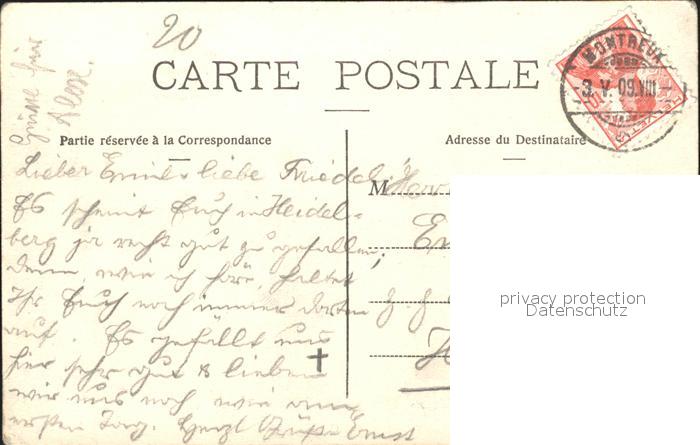 20
Grüsse für
Alex.
CARTE POSTALE
MONTREUX
3. V. 09. VIII
HELVETIA
Partie réservée à la Correspondance
Adresse du Destinataire
Lieber Emil & liebe Friedel!
Es scheint Euch in Heidel-
berg ja recht gut zu gefallen,
denn, wie ich höre, haltet
Ihr Euch noch immer dorten
auf. Es gefällt uns
hier sehr gut & lieben
wir uns noch wie am
ersten Tag. Herzl Grüsse Ernst
M Herrn
privacy protection
Datenschutz